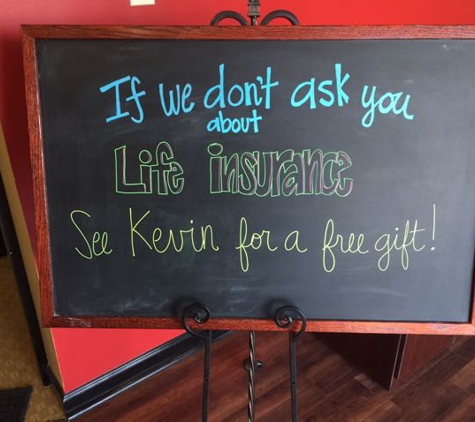 If we don't ask you
about
Life insurance
See Kevin for a free gift!